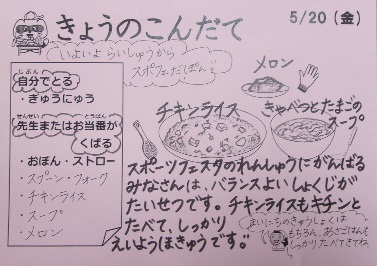 きょうのこんだて
5/20（金）
いよいよ らいしゅうから
スポフェだぽん
自分でとる
じぶん
・ぎゅうにゅう
せんせい とうばん
先生またはお当番が
くばる
・おぼん・ストロー
・スプーン・フォーク
・チキンライス
・スープ
・メロン
メロン
チキンライス
きゃべつとたまごの
スープ
スポーツフェスタのれんしゅうにがんばる
みなさんは、バランスよいしょくじが
たいせつです。チキンライスもキチンと
たべて、しっかり
えいようほきゅうです。
まいにちのきゅうしょくは
もちろん、あさごはんも
しっかりたべてきてね